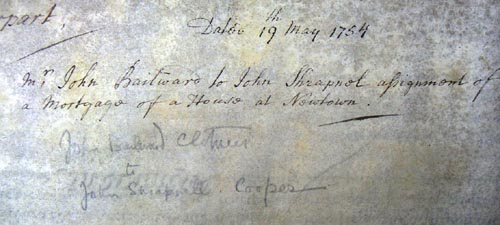 part,
Dated 19th May 1754
Mr. John Baitward to John Shrapnel assignment of
a Mortgage of a House at Newtown.
John Clothier
to
John Shrapnell. Cooper